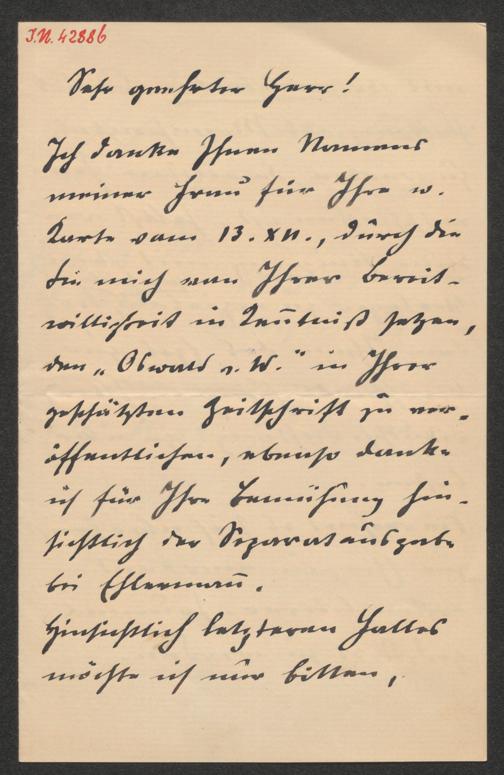 J.N. 42886
Sehr geehrter Herr!
Ich danke Ihnen Namens
meiner Frau für Ihre w.
Karte vom 13. XII., durch die
Sie mich von Ihrer Bereit-
willigkeit in Kenntniß setzen,
den „Oswald v. W." in Ihrer
geschätzten Zeitschrift zu ver-
öffentlichen, ebenso danke
ich für Ihre Bemühung hin-
sichtlich der Separatausgabe
bei Ehlermann.
Hinsichtlich letzteren Falles
möchte ich nur bitten,